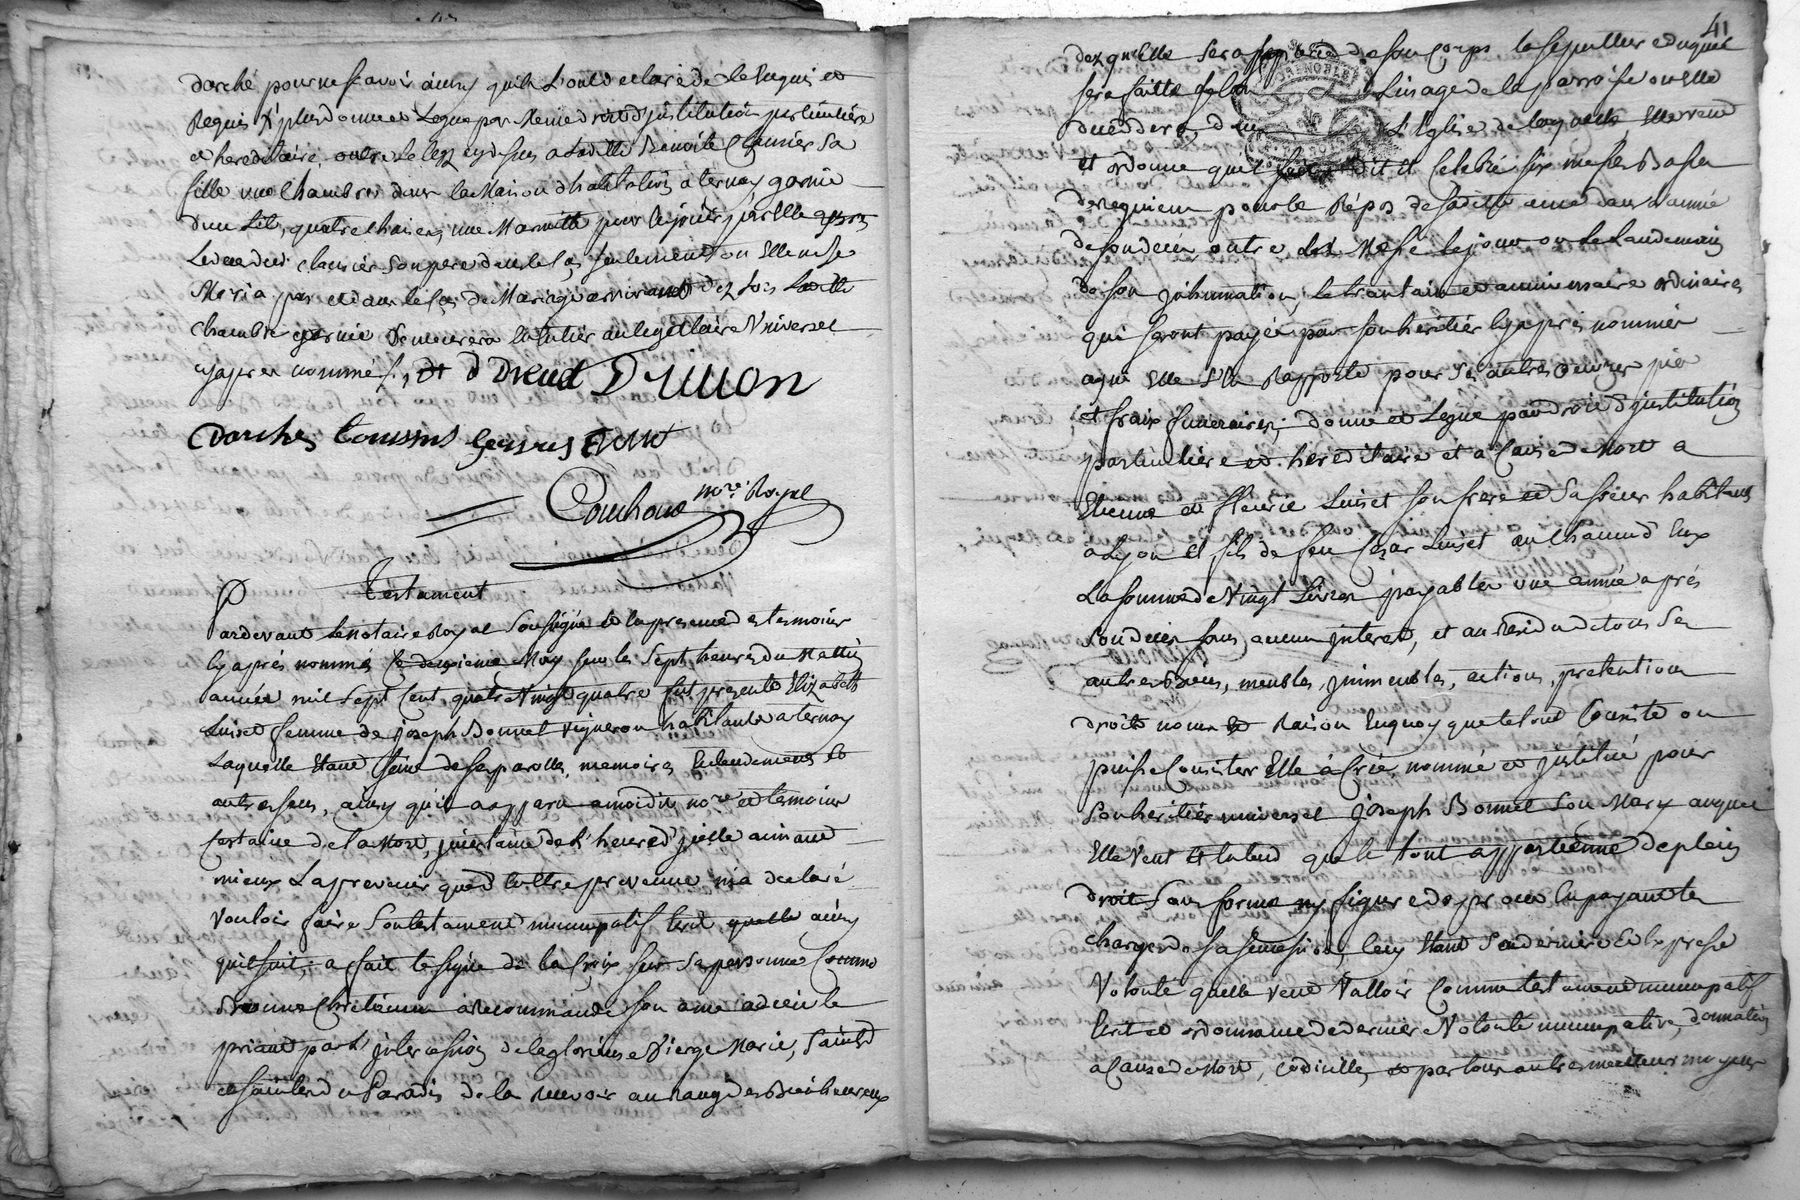 darché pour ne scavoir ainsy qu'ils L'ont declaré de ce Enquis et
Requis /. plus donne et Legue par Meme droit d'jnstitution particuliere
et hereditaire, outre le legz cy dessus a Laditte Benoite Clansier Sa
fille une Chambre dans la Maison d'habitation a ternay garnie
d'un Lit, quatre chaises, une Marmitte pour le jouir par Elle apres
Le deced dudt Clansier Son pere dans le Cas Seulement ou Elle ne Se
Maria pas et dans le Cas de Mariage arrivant dez Lors Laditte
Chambre garnie demeurera au legataire Universel
cy apres nommé /.
Darches
Couchoud nore Royal
Testament
Pardevant Le notaire Royal Soussigné et En presence des temoins
Cy aprés nommés Ce deuxieme May Sur les Sept heures du Mattin
année mil Sept Cent quatre Vingt quatre fut presente Elizabeth
Luiset femme de joseph Bonnet Vigneron habitante a ternay
Laquelle Etant Saine de Ses parolles, memoire, Entendement et
autres Sens, ainsy qu'il a apparu a moi dit nore et temoins
Certaine de la Mort, jncertaine de L'heure d'jcelle aimant
mieux La prevenir que d'Etre prevenue m'a declaré
Vouloir faire Son testament nuncupatif Ecrit, quelle ainsy
quil suit; a fait le Signe de la Croix Sur Sa personne Comme
Bonne Chretienne a Recommandé Son ame a dieu le
priant par L'jntercession de la glorieuse Vierge Marie, Saints
et Saintes du Paradis de la Recevoir au Rang des Bienheureux
41
dez qu'Elle Sera Separée de Son Corps la Sepulture duquel
Sera faitte Selon L'usage de la parroisse ou Elle
decedera, dans L'Eglise de laquelle Elle veut
et ordonne quil Soit dit et Celebré Six messes Basses
de requiem pour le Répos de Saditte ame dans L'année
de Son deces outre La Messe le jour ou Le Landemain
de Son jnhumation, le trantain et anniversaire ordinaires
qui Seront payés par Son heritier Cy aprés nommé
a qui Elle S'En Rapporte pour Ses autres œuvres pies
et fraix funeraires; donne et Legue par droit d'jnstitution
particuliere et hereditaire et a Cause de Mort a
Etienne et fleurie Luiset Son frere et Sa Sœur habitans
a Lyon et fils de feu Cesar Luiset au Chacun d'Eux
La Somme de Vingt Livres payables une année aprés
Son deces Sans aucun jnterest, et au Residu de tous Ses
autres Biens, meubles, jmmeubles, actions, pretentions
droits noms et Raisons En quoy que le tout Consiste ou
puisse Consister Elle á Créé, nommé et jnstitué pour
Son heritier universel joseph Bonnet Son Mary auquel
Elle Veut et Entend que le tout appartienne de plein
droit Sans forme ny figure de proces En payant les
charges de Sa Succession, Cecy Etant Sa derniere et Expresse
Volonté quelle veut Valloir Comme testament nuncupatif
Ecrit et ordonnance de derniere Volonté nuncupative, donnation
a Cause de Mort, codicille, et par tous autres meilleurs moyens